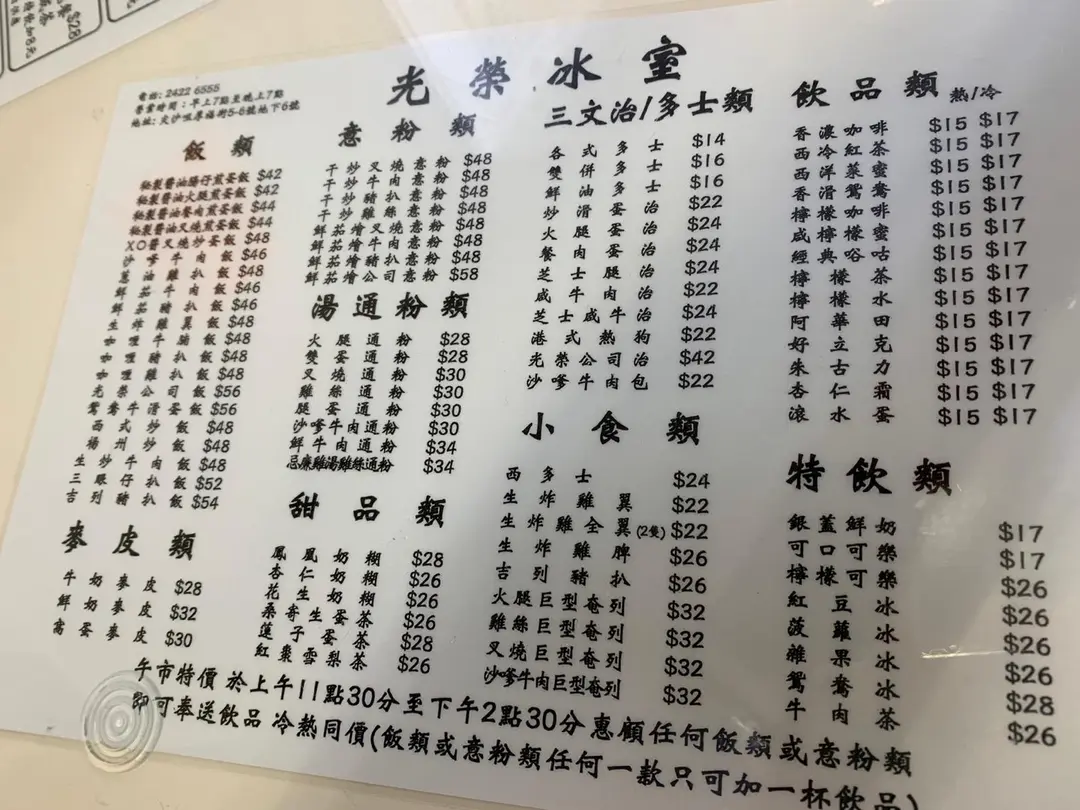 光榮冰室
電話: 2422 6555
營業時間：早上7點至晚上7點
地址: 尖沙咀厚福街5-6號地下6號
飯類
秘製醬油腸仔煎蛋飯 $42
秘製醬油火腿煎蛋飯 $42
秘製醬油餐肉煎蛋飯 $44
秘製醬油叉燒煎蛋飯 $44
XO醬叉燒炒蛋飯 $48
沙嗲牛肉飯 $46
蔥油雞扒飯 $48
鮮茄牛肉飯 $46
鮮茄豬扒飯 $46
生炸雞翼飯 $48
咖喱牛腩飯 $48
咖喱豬扒飯 $48
咖喱雞扒飯 $48
光榮公司飯 $56
鴛鴦牛滑蛋飯 $56
西式炒飯 $48
楊州炒飯 $48
生炒牛肉飯 $48
三眼仔扒飯 $52
吉列豬扒飯 $54
麥皮類
牛奶麥皮 $28
鮮奶麥皮 $32
窩蛋麥皮 $30
意粉類
干炒叉燒意粉 $48
干炒牛肉意粉 $48
干炒豬扒意粉 $48
干炒雞絲意粉 $48
鮮茄燴叉燒意粉 $48
鮮茄燴牛肉意粉 $48
鮮茄燴豬扒意粉 $48
鮮茄燴公司意粉 $58
湯通粉類
火腿通粉 $28
雙蛋通粉 $28
叉燒通粉 $30
雞絲通粉 $30
腿蛋通粉 $30
沙嗲牛肉通粉 $30
鮮牛肉通粉 $34
忌廉雞湯雞絲通粉 $34
甜品類
鳳凰奶糊 $28
杏仁奶糊 $26
花生奶糊 $26
桑寄生蛋茶 $26
蓮子蛋茶 $28
紅棗雪梨茶 $26
三文治/多士類
各式多士 $14
雙併多士 $16
鮮油多士 $16
炒滑蛋治 $22
火腿蛋治 $24
餐肉蛋治 $24
芝士腿治 $24
咸牛肉治 $22
芝士咸牛治 $24
港式熱狗 $22
光榮公司治 $42
沙嗲牛肉包 $22
小食類
西多士 $24
生炸雞翼 $22
生炸雞全翼(2隻) $22
生炸雞脾 $26
吉列豬扒 $26
火腿巨型奄列 $32
雞絲巨型奄列 $32
叉燒巨型奄列 $32
沙嗲牛肉巨型奄列 $32
飲品類 熱/冷
香濃咖啡 $15 $17
西冷紅茶 $15 $17
西洋菜蜜 $15 $17
香滑鴛鴦 $15 $17
檸檬咖啡 $15 $17
咸檸檬蜜 $15 $17
經典唂咕 $15 $17
檸檬茶 $15 $17
檸檬水 $15 $17
阿華田 $15 $17
好立克 $15 $17
朱古力 $15 $17
杏仁霜 $15 $17
滾水蛋 $15 $17
特飲類
銀蓋鮮奶 $17
可口可樂 $17
檸檬可樂 $26
紅豆冰 $26
菠蘿冰 $26
雜果冰 $26
鴛鴦冰 $28
牛肉茶 $26
午市特價 於上午11點30分至下午2點30分惠顧任何飯類或意粉類
即可奉送飲品 冷熱同價(飯類或意粉類任何一款只可加一杯飲品)